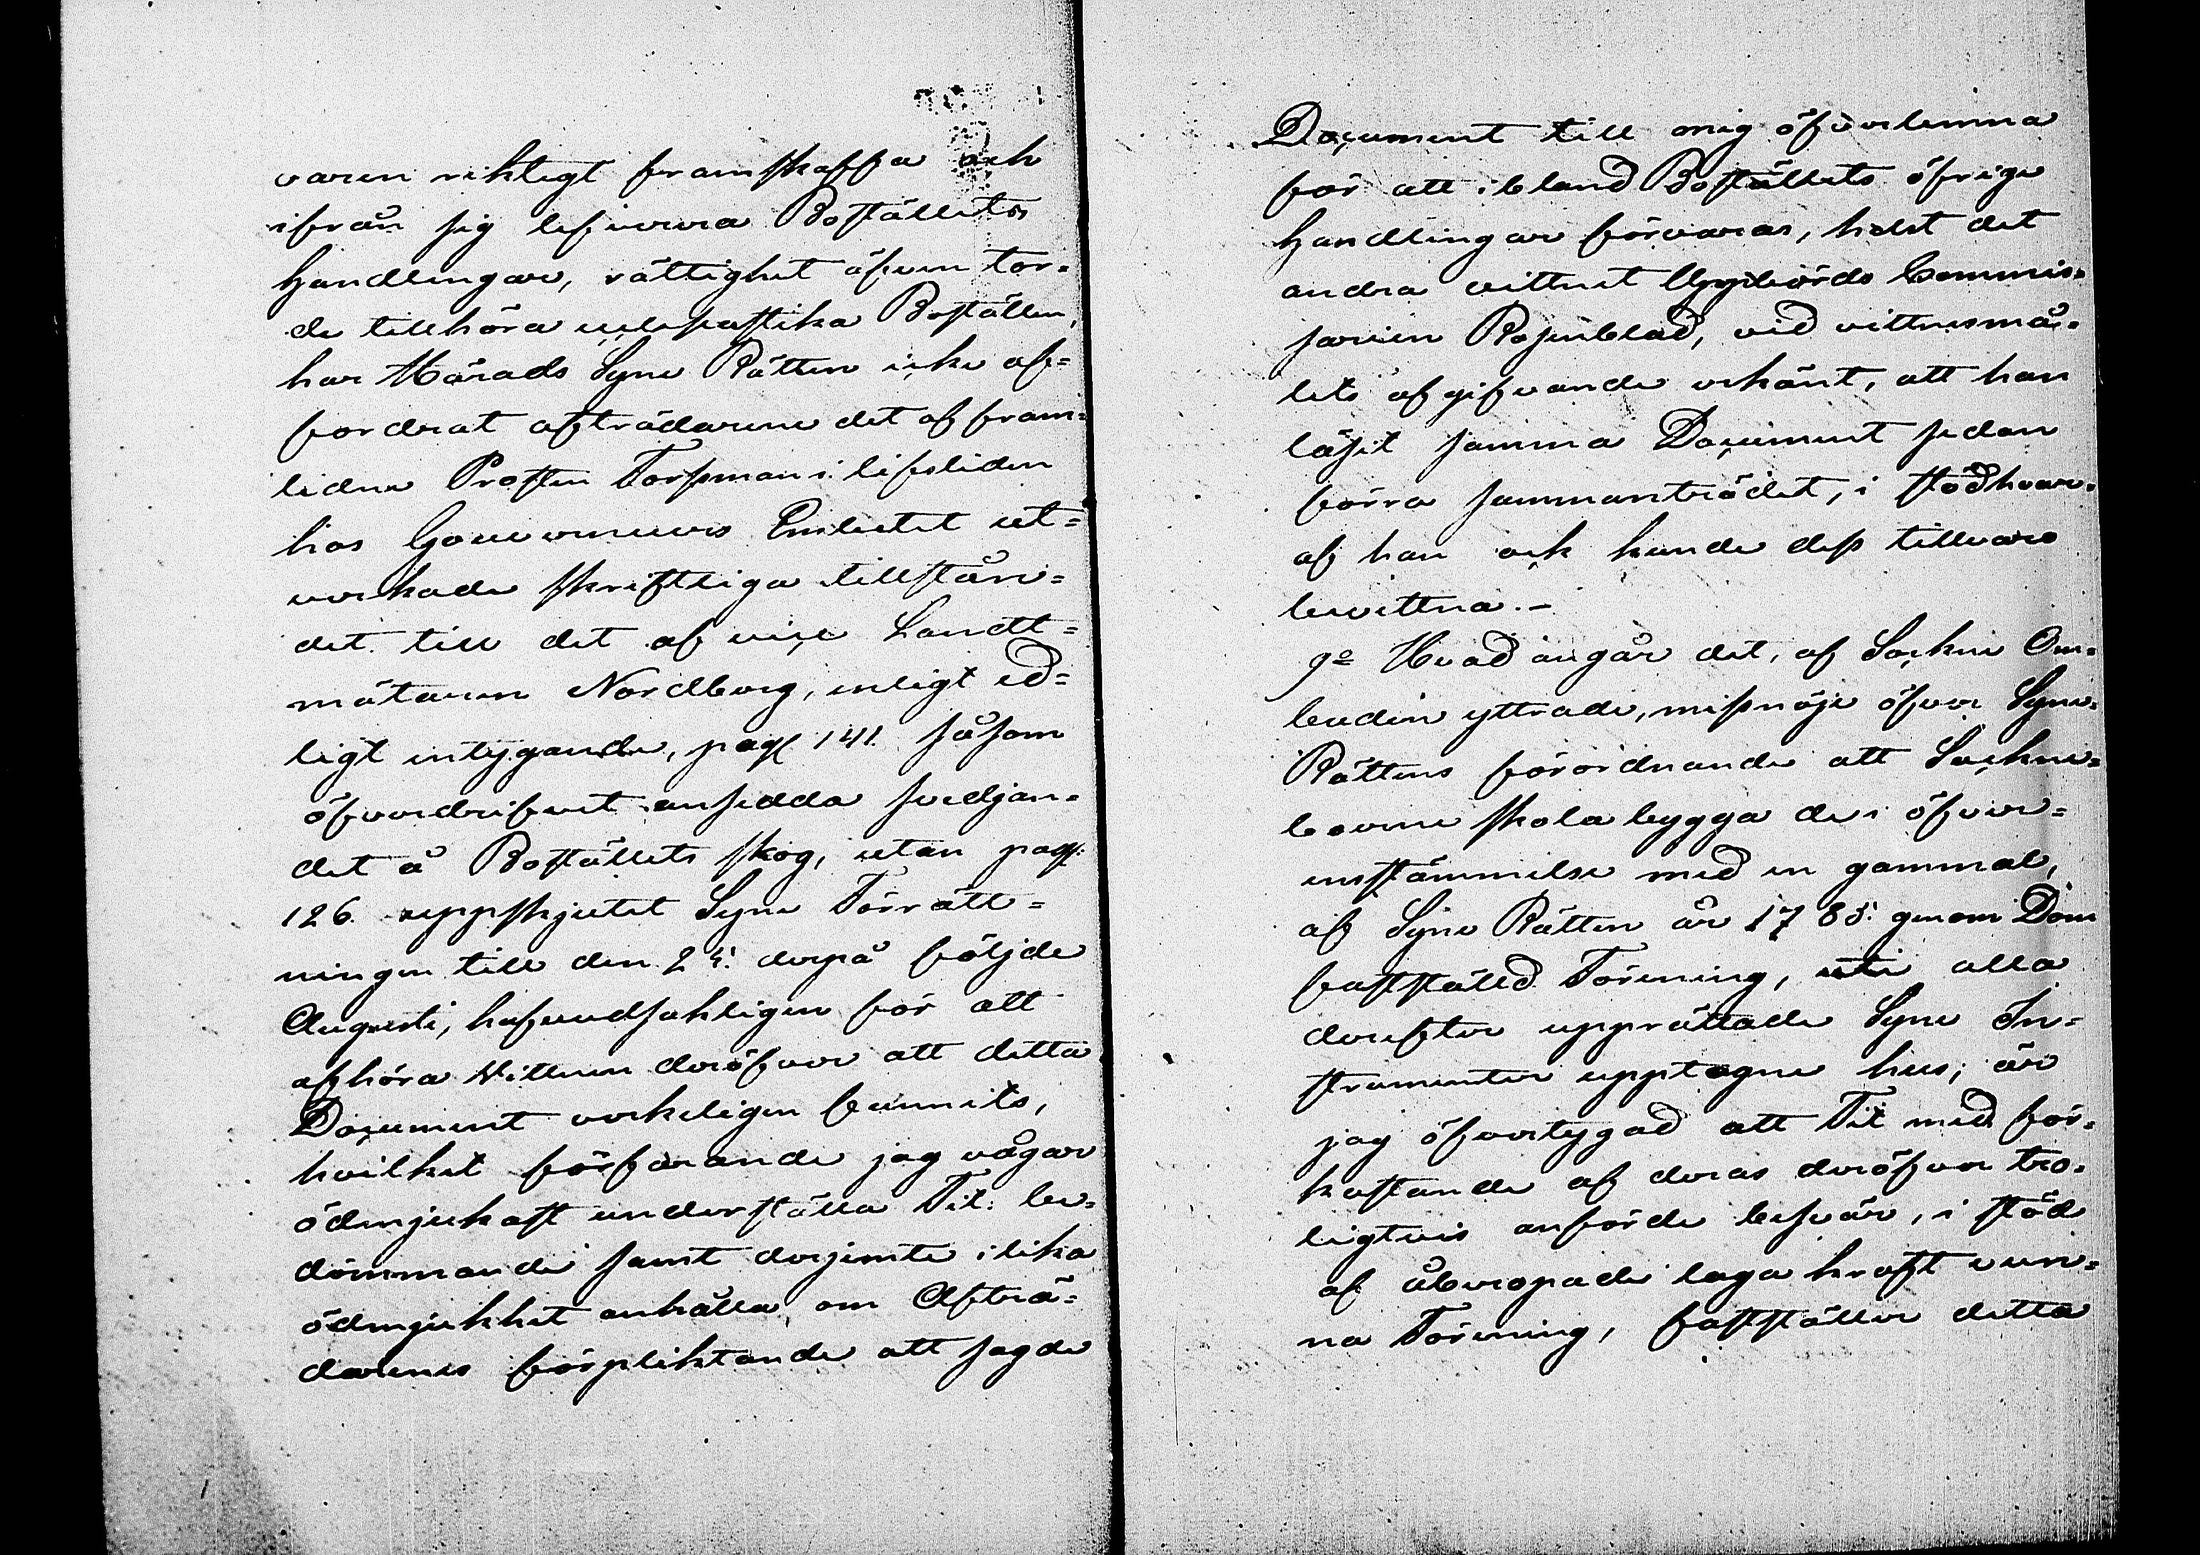 varen riktigt framskaffa och
ifrån sig lefverera Boställets
handlingar, rättighet äfven tor-
de tillhöra ecclesiastika Boställen,
har Härads Syne Rätten icke af-
fordrat afträdarene det af fram-
lidne Prosten Forsman i lifstiden
hos Gouverneurs Embetet ut-
verkade skriftliga tillstån-
det till det af vice Landt-
mätaren Nordberg, enligt ed-
ligt intygande, pag 141. såsom
öfverdrifvet ansedda svedjan-
det å Boställets skog, utan pag:
126. uppskjutet Syne Förrätt-
ningen till den 25. derpå följde
Augusti, hufvudsakligen för att
afhöra Vittnen deröfver att detta
Document verkeligen funnits,
hvilket förfarande jag vågar
ödmjukast underställa Tit: be-
dömmande samt derjemte i lika
ödmjukhet anhålla om Afträ-
darenes förpliktande att sagde
Document till mig öfverlemna
för att ibland Boställets öfrige
handlingar förvaras, helst det
andra vittnet Uppbörds Commis-
sarien Rosenblad, vid vittnesmå-
lets afgifvande erkänt, att han
läsit samma Document sedan
förra sammanträdet, i stöd hvar-
af han ock kunde dess tillvaro
bevittna.-
9o Hvad angår det, af Sockne Om-
buden yttrade, missnöje öfver Syne-
Rättens förordnande att Sockne-
boerne skola bygga de i öfver-
ensstämmelse med en gammal,
af Syne Rätten år 1785. genom Dom
fastställd Förening, uti alla
derefter upprättade Syne In-
strumenter upptagne hus; är
jag öfvertygad att Tit med för-
kastande af deras deröfver tro-
ligtvis anförde besvär, i stöd
af åberopade laga kraft vun-
na Förening, fastställer detta